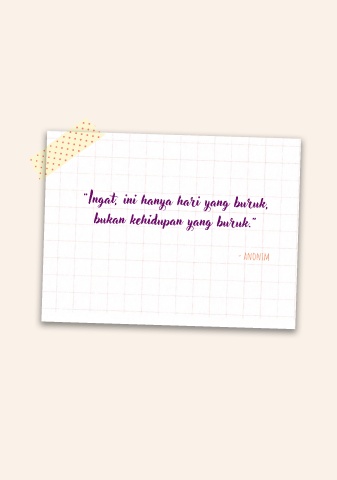 "Ingat, ini hanya hari yang buruk,
bukan kehidupan yang buruk."
- ANONIM